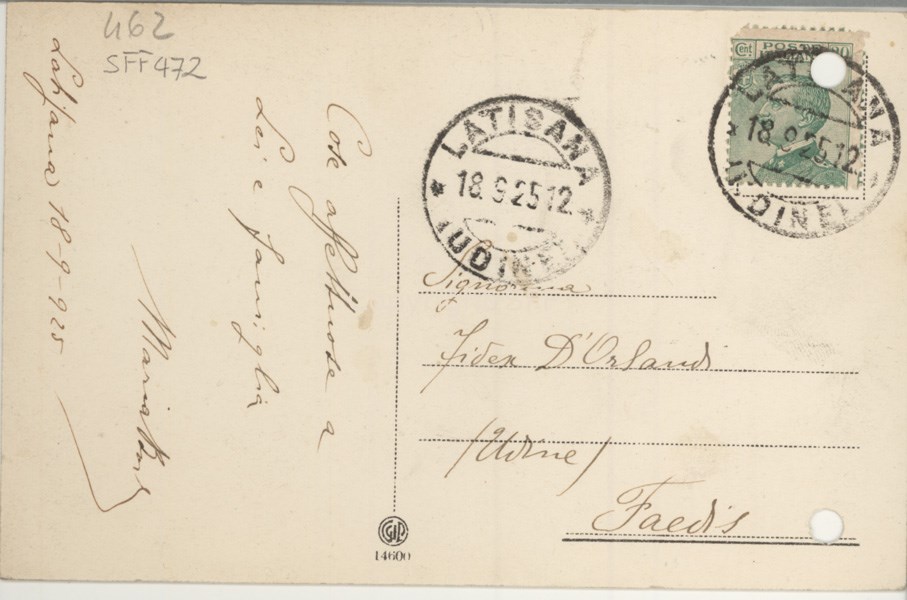 462
SFF 472
Cose affettuose a
Lei e famiglia
Maria
Latisana 18-9-925
LATISANA
18.9.25 12
(UDINE)
Cent. POSTE 20
LATISANA
18.9.25 12
(UDINE)
Signorina
Fides D'Orlandi
(Udine)
Faedis
14600